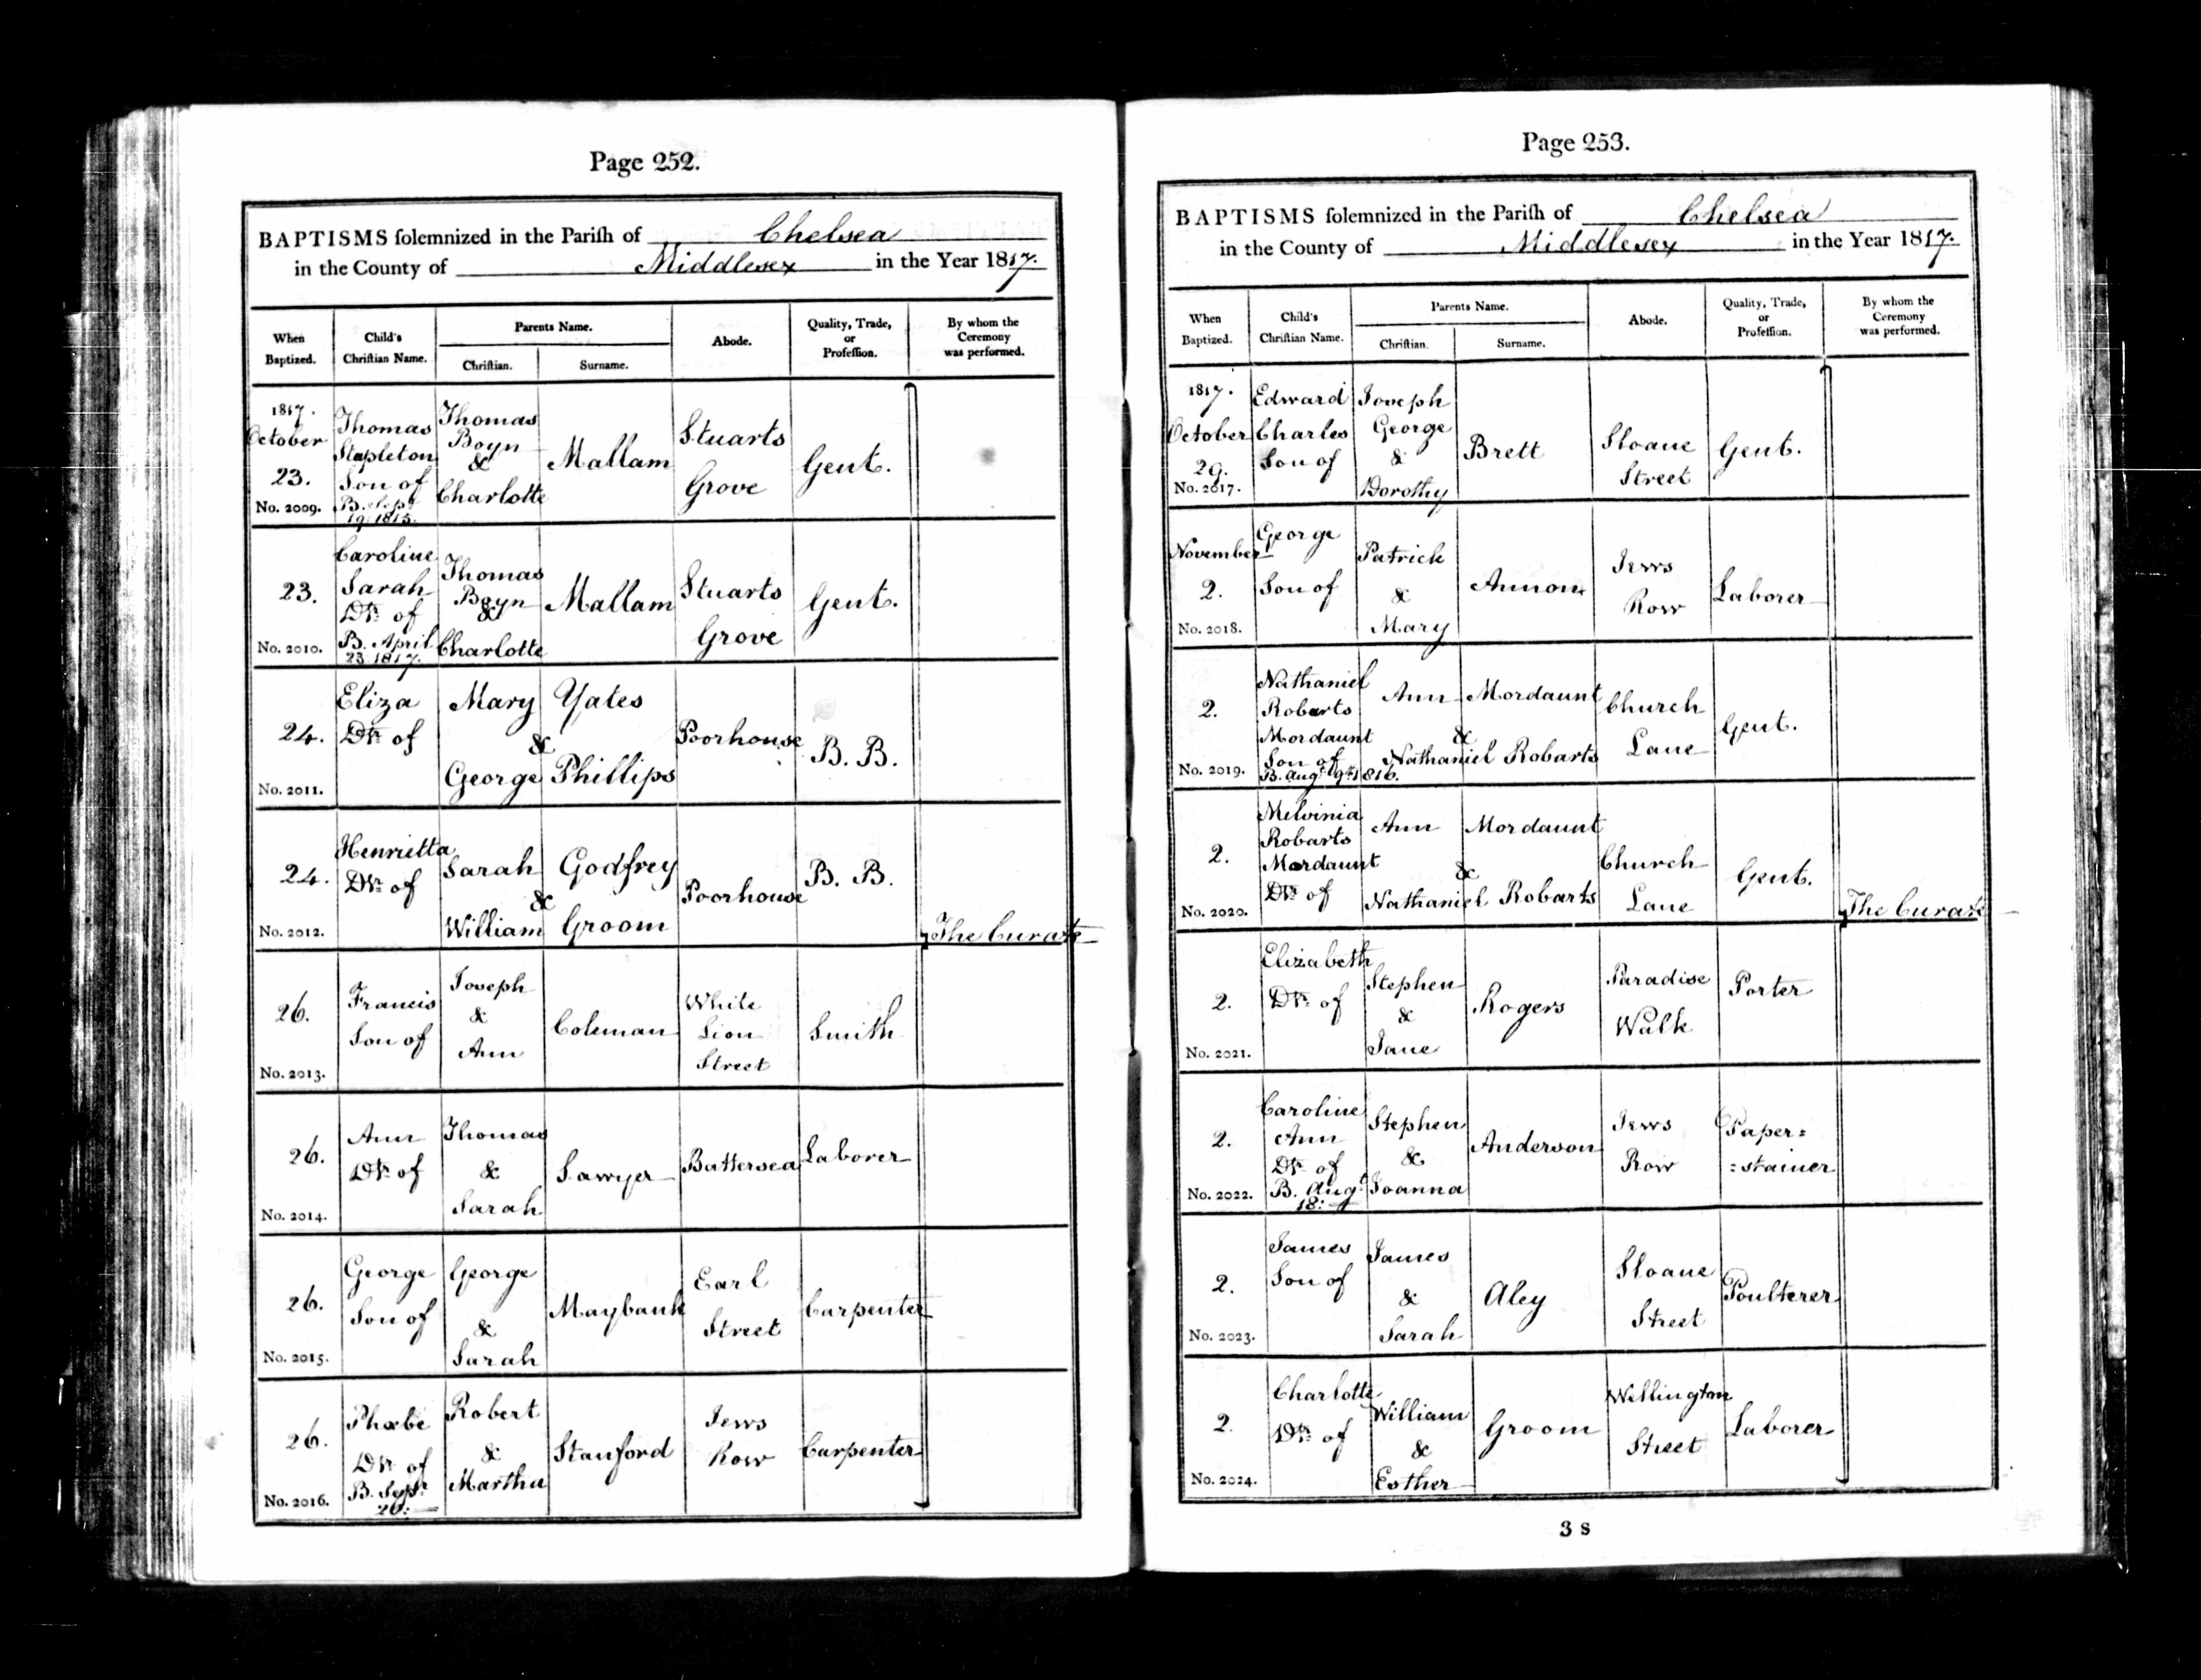 Page 252.
BAPTISMS solemnized in the Parish of Chelsea
in the County of Middlesex in the Year 1817.
When Baptized.
Child's Christian Name.
Parents Name.
Christian.
Surname.
Abode.
Quality, Trade, or Profession.
By whom the Ceremony was performed.
1817.
October
23.
No. 2009.
Thomas
Stapleton
Son of
B. Sept
19: 1815.
Thomas
Boyn
&
Charlotte
Mallam
Stuarts
Grove
Gent.
23.
No. 2010.
Caroline
Sarah
Dr. of
B. April
23 1817.
Thomas
Boyn
&
Charlotte
Mallam
Stuarts
Grove
Gent.
24.
No. 2011.
Eliza
Dr. of
Mary Yates
&
George Phillips
Poorhouse
B. B.
24.
No. 2012.
Henrietta
Dr. of
Sarah Godfrey
&
William Groom
Poorhouse
B. B.
The Curate
26.
No. 2013.
Francis
Son of
Joseph
&
Ann
Coleman
White
Lion
Street
Smith
26.
No. 2014.
Ann
Dr. of
Thomas
&
Sarah
Sawyer
Battersea
Laborer
26.
No. 2015.
George
Son of
George
&
Sarah
Maybank
Earl
Street
Carpenter
26.
No. 2016.
Phœbe
Dr. of
B. Sept.
26:
Robert
&
Martha
Stanford
Jews
Row
Carpenter
Page 253.
BAPTISMS solemnized in the Parish of Chelsea
in the County of Middlesex in the Year 1817.
When Baptized.
Child's Christian Name.
Parents Name.
Christian.
Surname.
Abode.
Quality, Trade, or Profession.
By whom the Ceremony was performed.
1817.
October
29.
No. 2017.
Edward
Charles
Son of
Joseph
George
&
Dorothy
Brett
Sloane
Street
Gent.
November
2.
No. 2018.
George
Son of
Patrick
&
Mary
Annon
Jews
Row
Laborer
2.
No. 2019.
Nathaniel
Robarts
Mordaunt
Son of
B. Augt. 9th 1816.
Ann Mordaunt
&
Nathaniel Robarts
Church
Lane
Gent.
2.
No. 2020.
Melvinia
Robarts
Mordaunt
Dr. of
Ann Mordaunt
&
Nathaniel Robarts
Church
Lane
Gent.
The Curate
2.
No. 2021.
Elizabeth
Dr. of
Stephen
&
Jane
Rogers
Paradise
Walk
Porter
2.
No. 2022.
Caroline
Ann
Dr. of
B. Augt.
18:
Stephen
&
Joanna
Anderson
Jews
Row
Paper=
=stainer
2.
No. 2023.
James
Son of
James
&
Sarah
Aley
Sloane
Street
Poulterer
2.
No. 2024.
Charlotte
Dr. of
William
&
Esther
Groom
Wellington
Street
Laborer
3 S